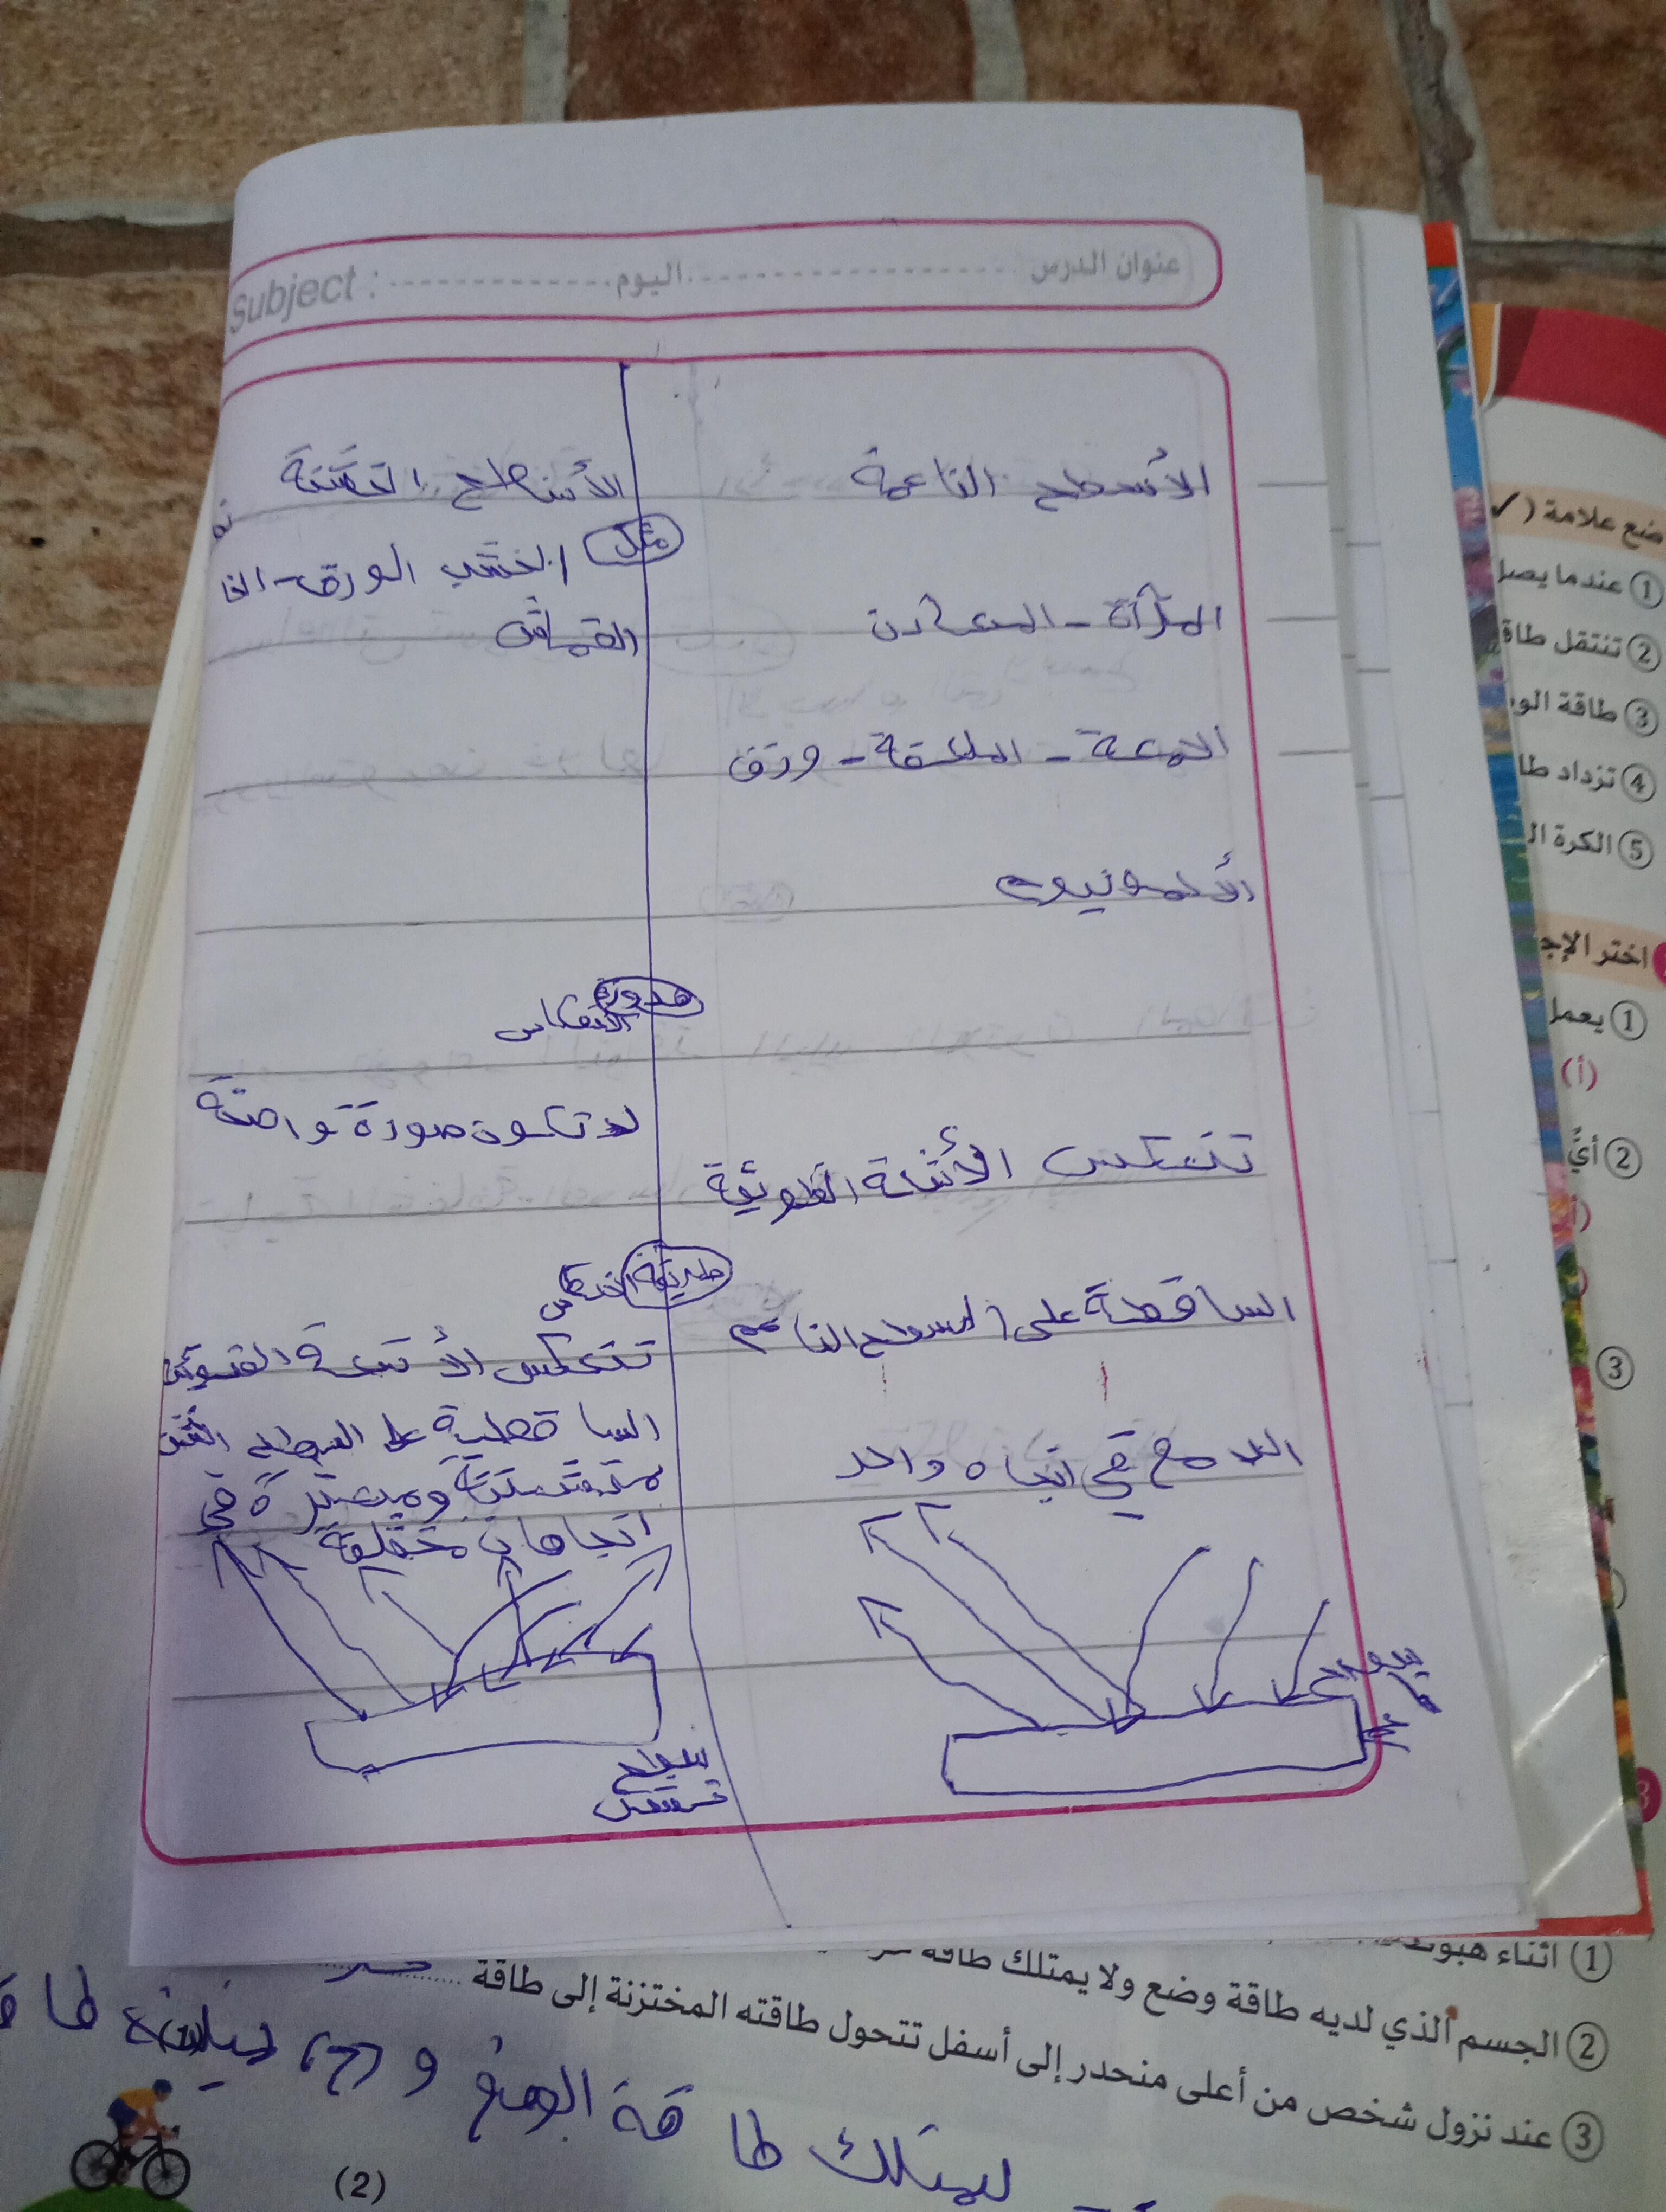 عنوان الدرس ........ اليوم ........ Subject :
الأسطح الناعمة
المرآة - المعادن
المعة - الملعقة - ورق
الألمونيوم
تنعكس الأشعة الضوئية
الساقطة على السطح الناعم
اللامع في اتجاه واحد
سطح
الأسطح الخشنة
مثل
الخشب الورق - الخا
القماش
صورة
الانعكاس
لا تكون صورة واضحة
طريقة انعكاس
تنعكس الأشعة الضوئية
الساقطة على السطح الخشن
متشتتة ومبعثرة في
اتجاهات مختلفة
سطح
خشن
ضع علامة (✓
① عندما يصل
② تنتقل طاق
③ طاقة الو
④ تزداد طا
⑤ الكرة ال
اختر الإج
① يعمل
(أ)
② أيّ
③
① أثناء هبوط
② الجسم الذي لديه طاقة وضع ولا يمتلك طاقة
③ عند نزول شخص من أعلى منحدر إلى أسفل تتحول طاقته المختزنة إلى طاقة ........
يمتلك طاقة الوضع و
(2)